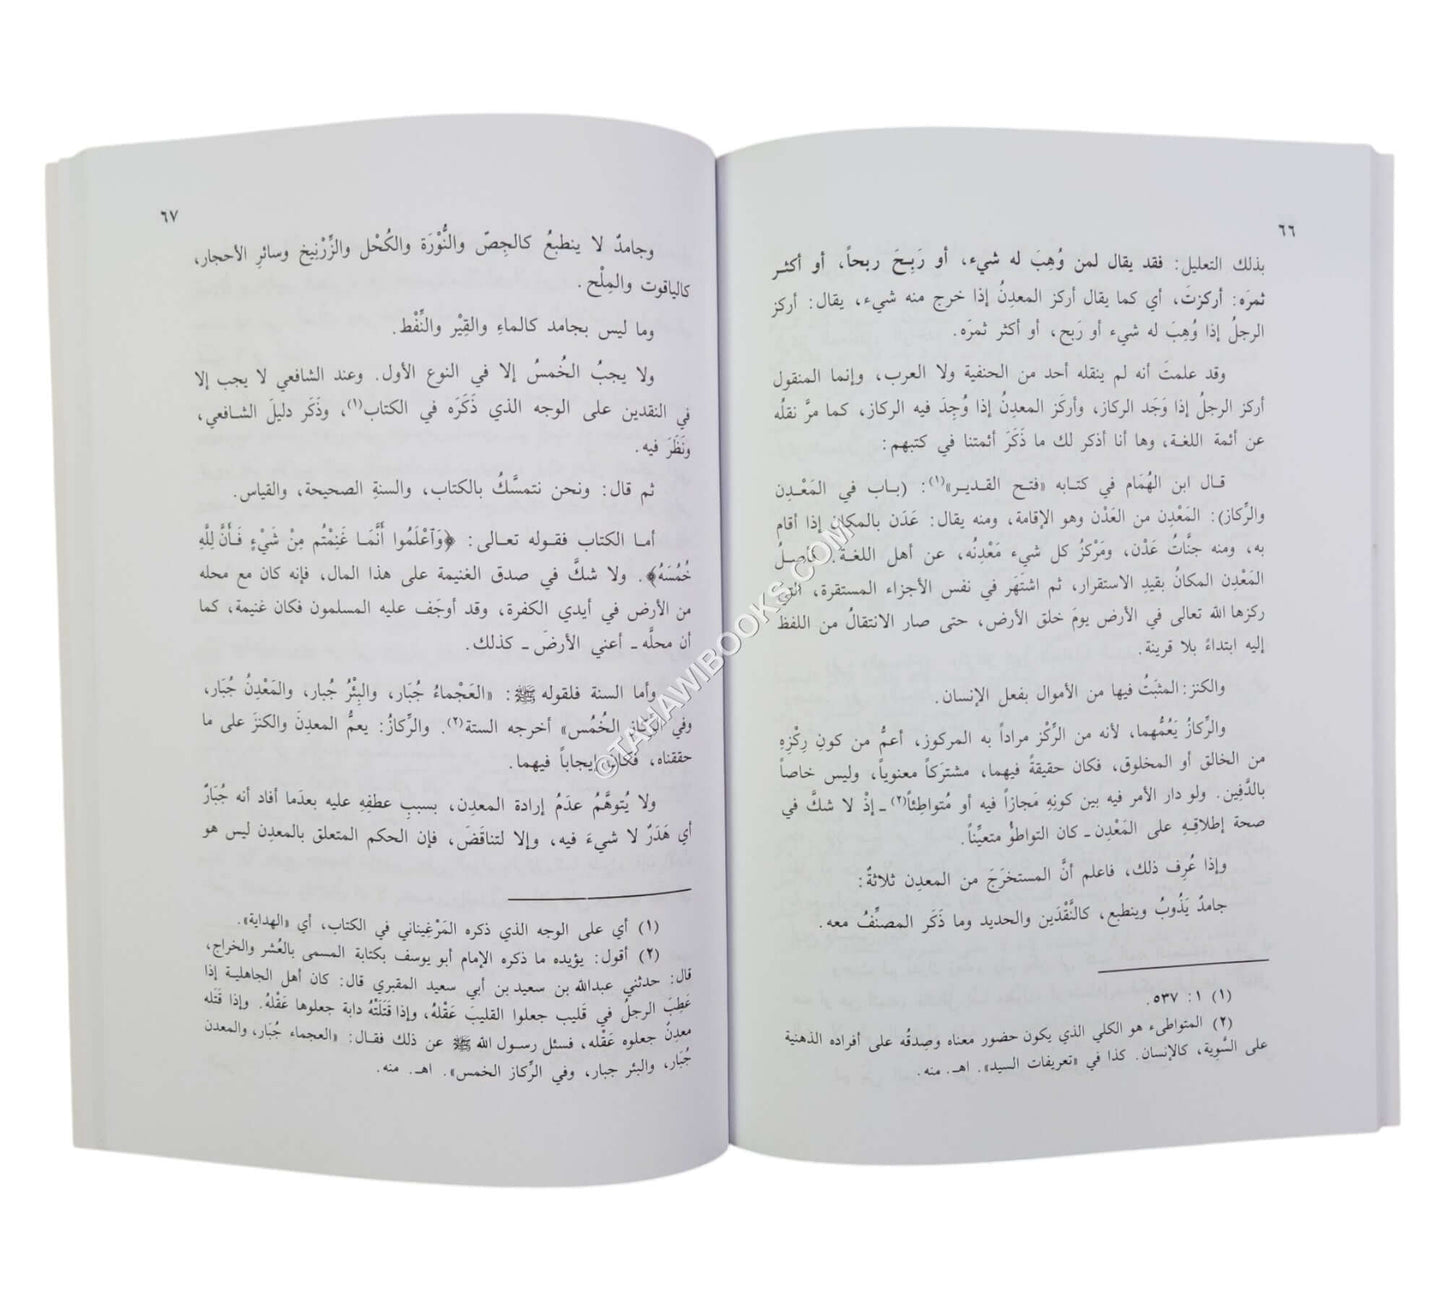 ٦٦
بذلك التعليل: فقد يقال لمن وُهِبَ له شيء، أو رَبِحَ ربحاً، أو أكثر
ثمرَه: أركزتَ، أي كما يقال أركز المعدِنُ إذا خرج منه شيء، يقال: أركز
الرجلُ إذا وُهِبَ له شيء أو رَبح، أو أكثر ثمرَه.
وقد علمتَ أنه لم ينقله أحد من الحنفية ولا العرب، وإنما المنقول
أركز الرجلُ إذا وَجَد الركاز، وأركَز المعدِنُ إذا وُجِدَ فيه الركاز، كما مرَّ نقلُه
عن أئمة اللغة، وها أنا أذكر لك ما ذَكَرَ أئمتنا في كتبهم:
قال ابن الهُمَام في كتابه «فتح القدير»(١): (باب في المَعْدِن
والرِّكاز): المَعْدِن من العَدْن وهو الإقامة، ومنه يقال: عَدَن بالمكان إذا أقام
به، ومنه جنَّات عَدْن، ومَرْكزُ كل شيء مَعْدِنُه، عن أهل اللغة. فأصلُ
المَعْدِن المكانُ بقيدِ الاستقرار، ثم اشتَهَر في نفس الأجزاء المستقرة، التي
ركزها الله تعالى في الأرض يومَ خلق الأرض، حتى صار الانتقالُ من اللفظ
إليه ابتداءً بلا قرينة.
والكنز: المثبَتُ فيها من الأموال بفعل الإنسان.
والرِّكازُ يَعُمُّهما، لأنه من الرِّكْز مراداً به المركوز، أعمُّ من كونِ رِكْزِهِ
من الخالق أو المخلوق، فكان حقيقةً فيهما، مشترَكاً معنوياً، وليس خاصاً
بالدَّفِين. ولو دار الأمر فيه بين كونِهِ مَجازاً فيه أو مُتواطِئاً(٢) ـ إذْ لا شكَّ في
صحة إطلاقِهِ على المَعْدِن ـ كان التواطؤُ متعيِّناً.
وإذا عُرِف ذلك، فاعلم أنَّ المستخرَجَ من المعدِن ثلاثةٌ:
جامدٌ يَذُوبُ وينطبع، كالنَّقْدَين والحديد وما ذَكَر المصنِّفُ معه.
(١) ١: ٥٣٧.
(٢) المتواطىء هو الكلي الذي يكون حضور معناه وصِدقُه على أفراده الذهنية
على السَّوية، كالإنسان. كذا في «تعريفات السيد». اهـ. منه.
٦٧
وجامدٌ لا ينطبعُ كالجِصّ والنُّوْرَة والكُحْل والزِّرْنِيخ وسائرِ الأحجار،
كالياقوت والمِلْح.
وما ليس بجامد كالماءِ والقِيْر والنِّفْط.
ولا يجبُ الخُمسُ إلا في النوع الأول. وعند الشافعي لا يجب إلا
في النقدين على الوجه الذي ذَكَرَه في الكتاب(١)، وذَكَر دليلَ الشافعي،
ونَظَرَ فيه.
ثم قال: ونحن نتمسَّكُ بالكتاب، والسنةِ الصحيحة، والقياس.
أما الكتاب فقوله تعالى: ﴿وَٱعْلَمُوا أَنَّمَا غَنِمْتُم مِنْ شَيْءٍ فَأَنَّ لِلَّهِ
خُمُسَهُ﴾. ولا شكَّ في صدق الغنيمة على هذا المال، فإنه كان مع محله
من الأرض في أيدي الكفرة، وقد أوجَف عليه المسلمون فكان غنيمة، كما
أن محلَّه ـ أعني الأرضَ ـ كذلك.
وأما السنة فلقوله ﷺ: «العَجْماءُ جُبَار، والبِئْرُ جُبار، والمَعْدنُ جُبَار،
وفي الرِّكازِ الخُمُس» أخرجه الستة(٢). والرِّكازُ: يعمُّ المعدِنَ والكنزَ على ما
حققناه، فكان إيجاباً فيهما.
ولا يُتوهَّمُ عدَمُ إرادة المعدِن، بسببِ عطفِهِ عليه بعدَما أفاد أنه جُبَارٌ
أي هَدَرٌ لا شيءَ فيه، وإلا لتناقَضَ، فإن الحكم المتعلق بالمعدِن ليس هو
(١) أي على الوجه الذي ذكره المَرْغِيناني في الكتاب، أي «الهداية».
(٢) أقول: يؤيده ما ذكره الإمام أبو يوسف بكتابة المسمى بالعُشر والخراج،
قال: حدثني عبدالله بن سعيد بن أبي سعيد المقبري قال: كان أهل الجاهلية إذا
عَطِبَ الرجلُ في قليب جعلوا القليبَ عَقْلَهُ، وإذا قَتَلَتْهُ دابة جعلوها عَقْلَهُ. وإذا قَتَله
معدِنٌ جعلوه عَقْله، فسئل رسول الله ﷺ عن ذلك فقال: «العجماء جُبَار، والمعدن
جُبَار، والبئر جبار، وفي الرِّكاز الخمس». اهـ. منه.
©TAHAWIBOOKS.COM